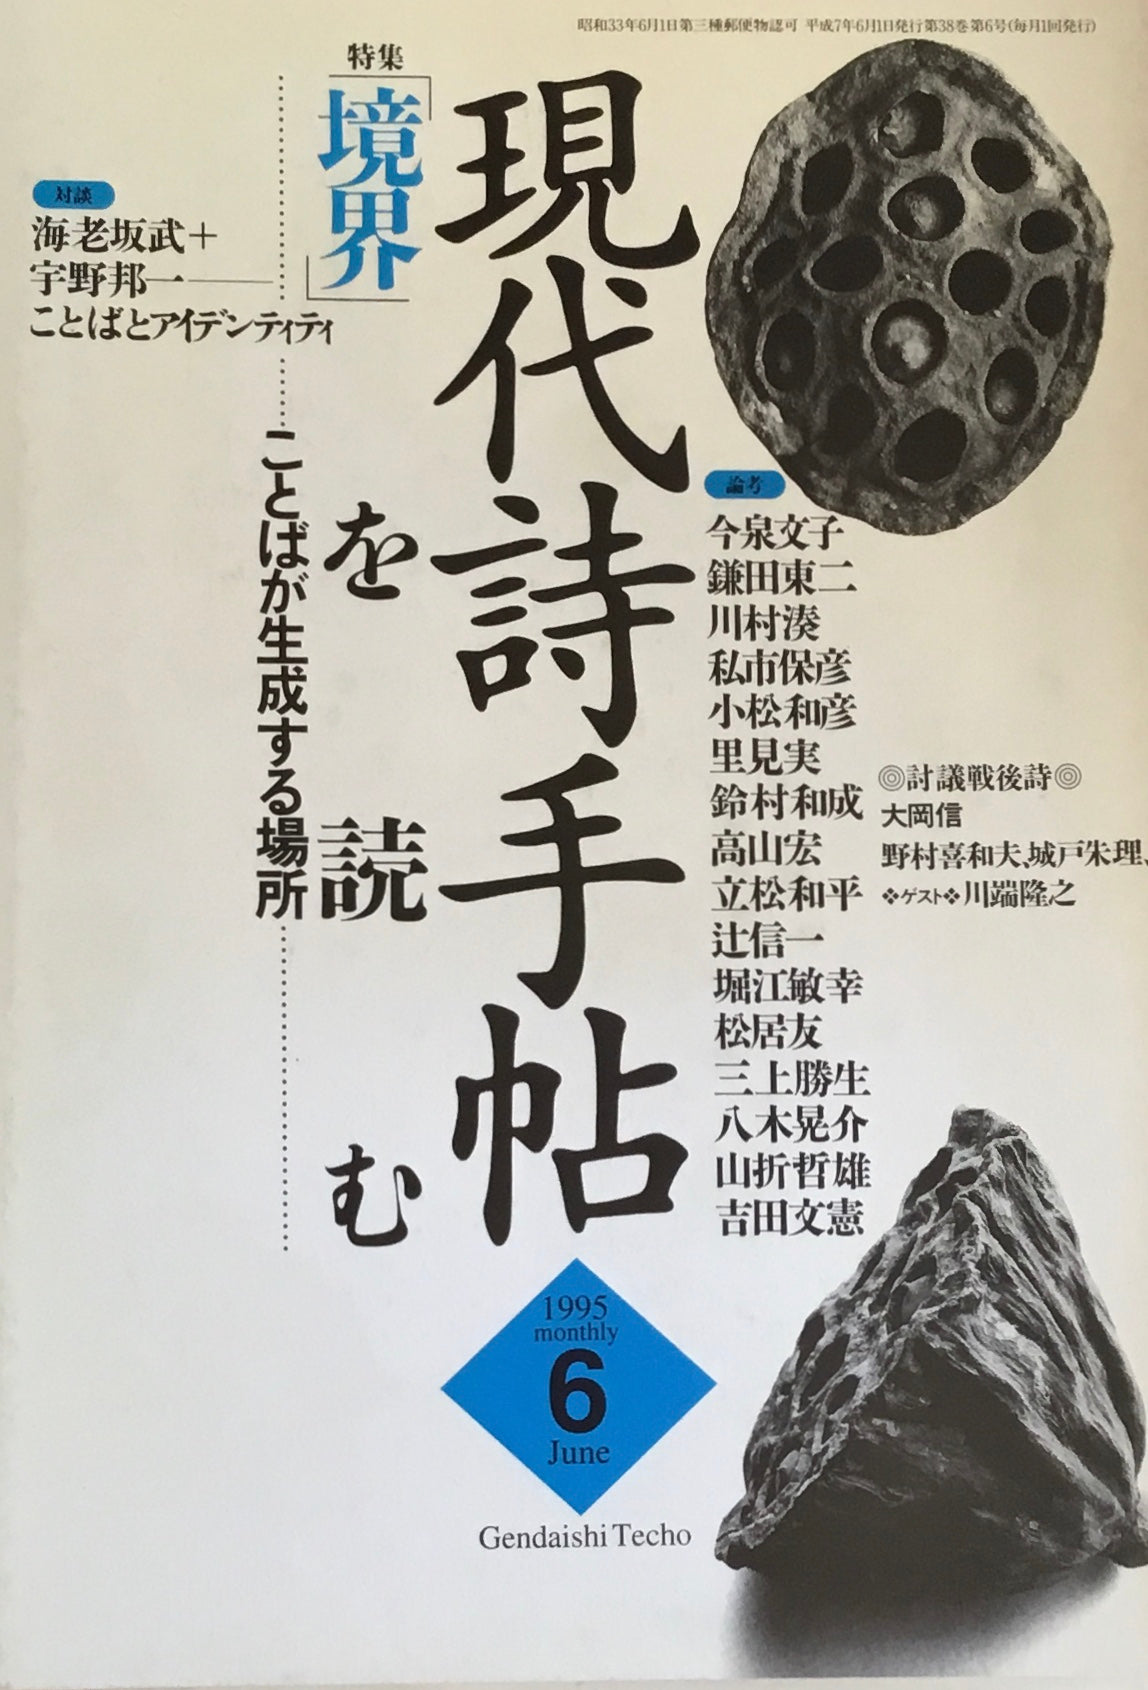 昭和33年6月1日第三種郵便物認可 平成7年6月1日発行第38巻第6号(毎月1回発行)
現代詩手帖
特集
「境界」を読む
ことばが生成する場所
対談
海老坂武＋
宇野邦一――
ことばとアイデンティティ
論考
今泉文子
鎌田東二
川村湊
私市保彦
小松和彦
里見実
鈴村和成
高山宏
立松和平
辻信一
堀江敏幸
松居友
三上勝生
八木晃介
山折哲雄
吉田文憲
◎討議戦後詩◎
大岡信
野村喜和夫、城戸朱理、
❖ゲスト❖川端隆之
1995
monthly
6
June
Gendaishi Techo